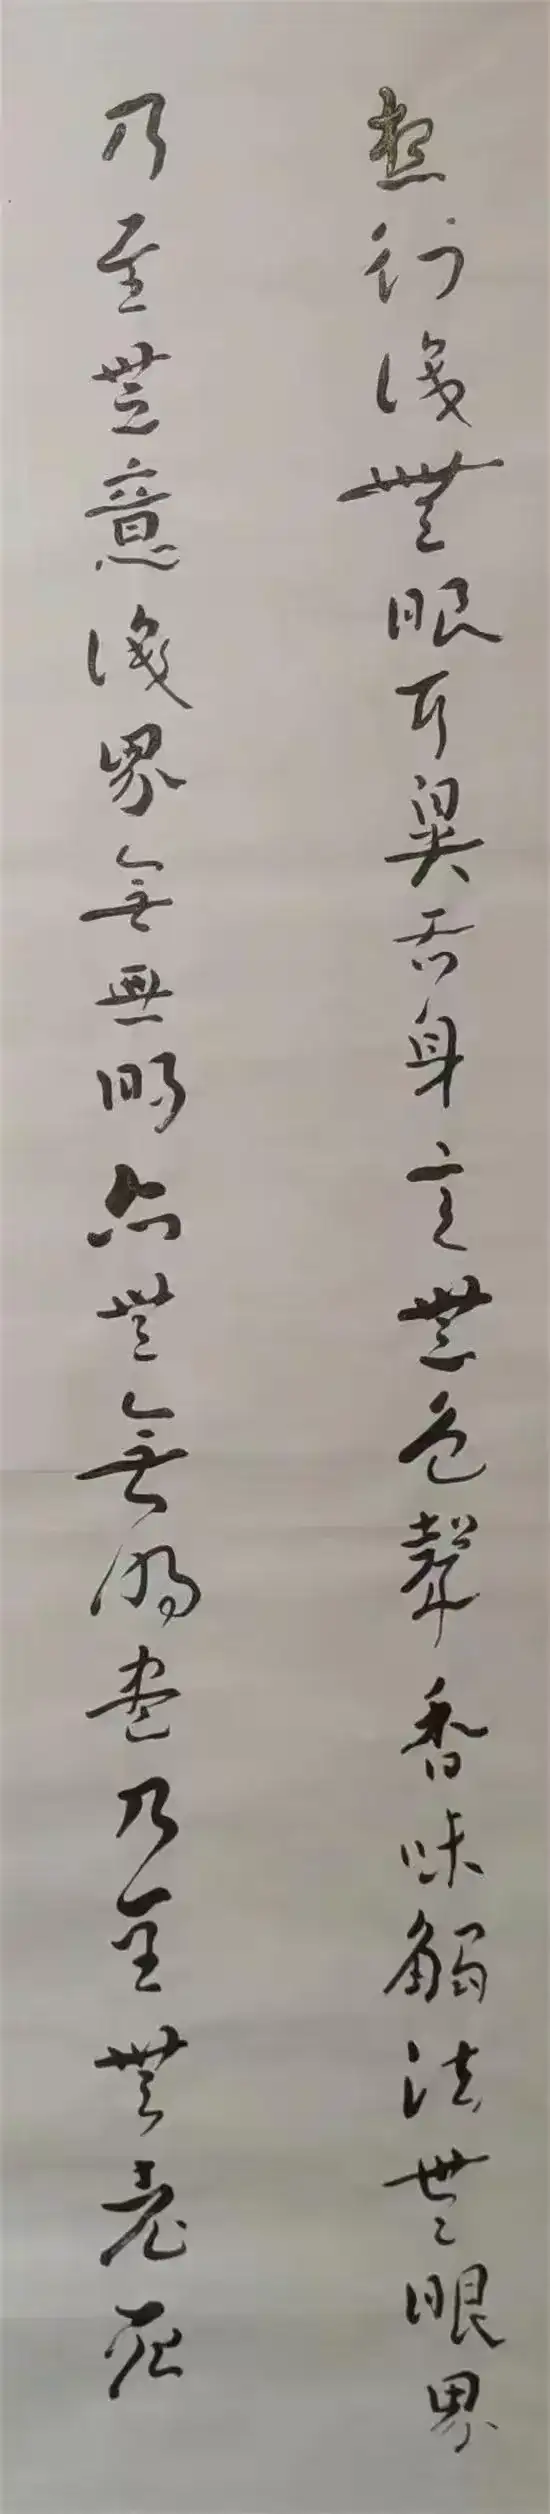 想行识無眼耳鼻舌身意無色聲香味觸法無眼界
乃至無意识界無無明亦無無明盡乃至無老死